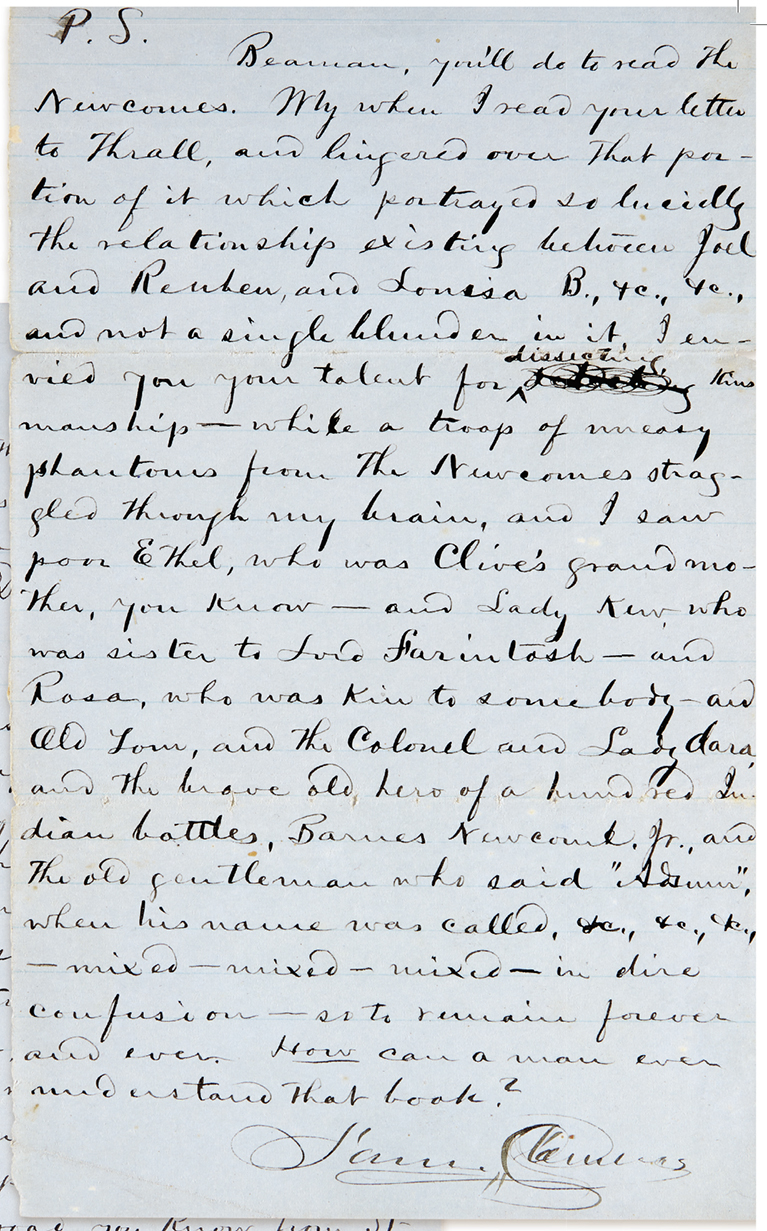 P.S.
Beaman, you'll do to read the
Newcomes. My when I read your letter
to Thrall, and lingered over that por-
tion of it which portrayed so lucidly
the relationship existing between Joel
and Reuben, and Louisa B., &c., &c.,
and not a single blunder in it, I en-
dissecting
vied you your talent for kins
manship — while a troop of uneasy
phantoms from the Newcomes strag-
gled through my brain, and I saw
poor Ethel, who was Clive's grandmo-
ther, you know — and Lady Kew, who
was sister to Lord Farintosh — and
Rosa, who was kin to somebody — and
Old Tom, and the Colonel and Lady Clara,
and the brave old hero of a hundred In-
dian battles, Barnes Newcome, Jr., and
the old gentleman who said "Adsum",
when his name was called, &c., &c., &c.,
— mixed — mixed — mixed — in dire
confusion — so to remain forever
and ever. How can a man ever
understand that book?
Sam. Clemens
you know from